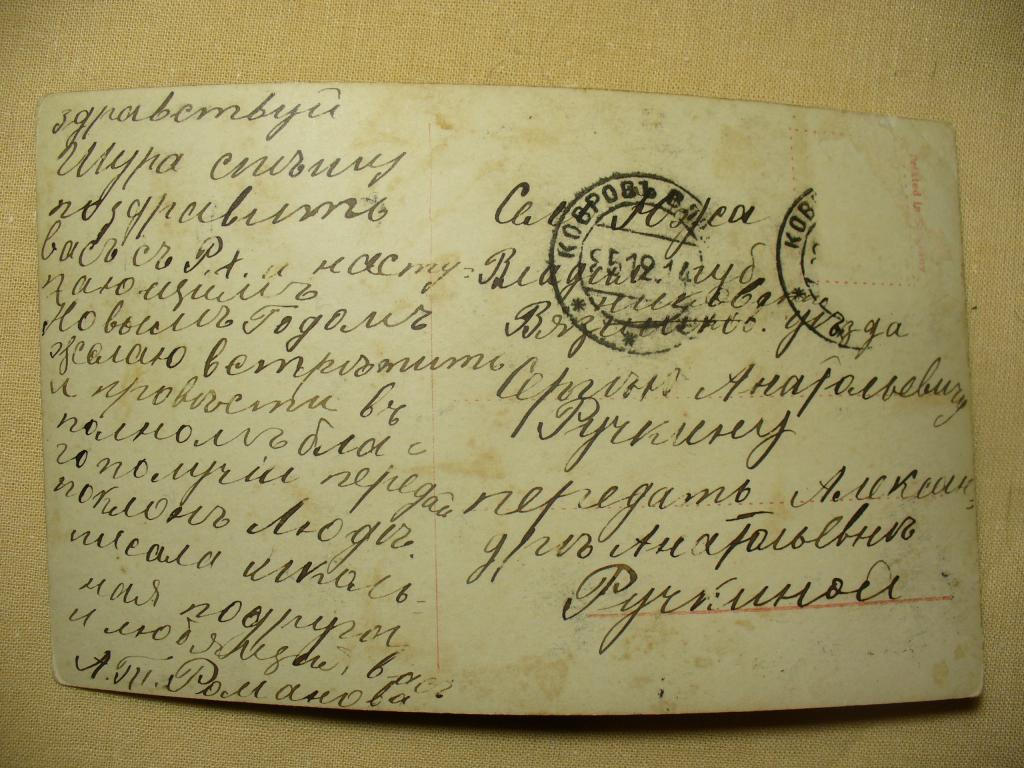 здравствуй
Шура спѣшу
поздравить
васъ съ Р.Х. и насту-
пающимъ
Новымъ Годомъ
желаю встрѣтить
и провѣсти въ
полномъ бла-
гополучіи передай
поклонъ Людѣ.
писала школь-
ная подруга
и любящій васъ
А.Т. Романова
Село Южа
Владим губ.
Вязниковск. уѣзда
Сергѣю Анатольевичу
Ручкину
передать Алексан-
дрѣ Анатольевнѣ
Ручкиной
КОВРОВЪ
25.12.14
КОВ